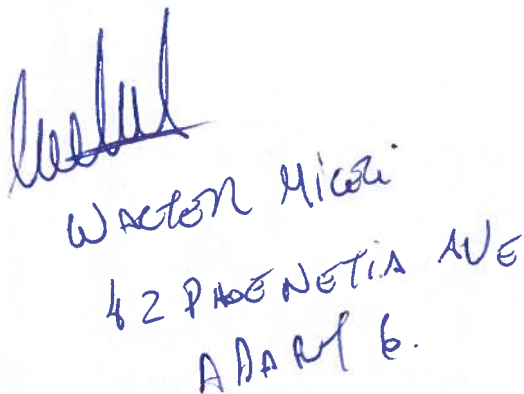 WALTER Miceli
42 PHOENETIA AVE
APART 6.